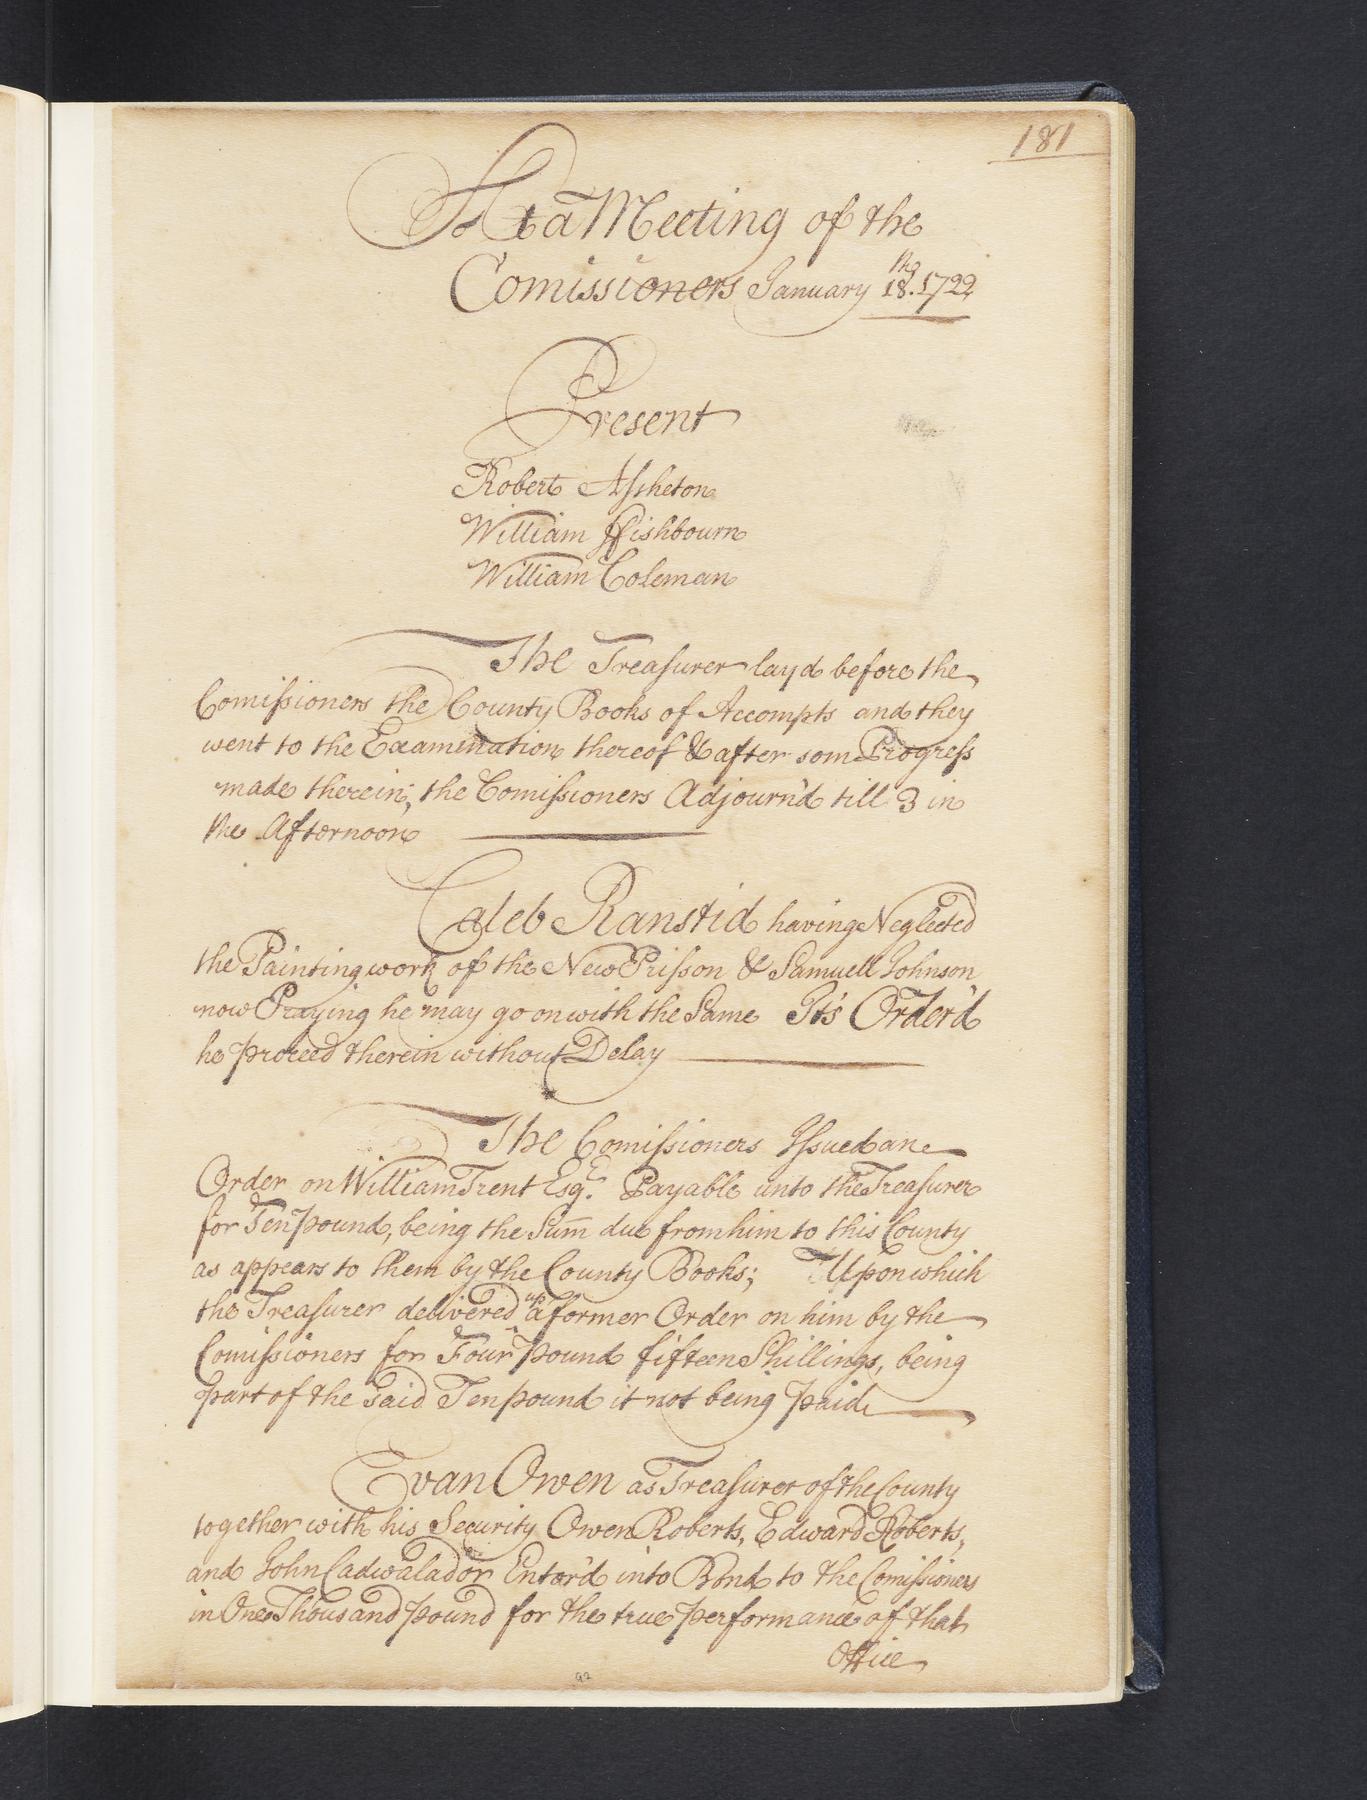 181
At a Meeting of the
Comissioners January the 18. 1722
Present
Robert Assheton
William Ffishbourn
William Coleman
The Treasurer layd before the
Comissioners the County Books of Accompts and they
went to the Examination thereof & after som Progress
made therein; the Comissioners Adjourn'd till 3 in
the Afternoon
Caleb Ranstid having Neglected
the Painting work of the New Prisson & Samuell Johnson
now Praying he may go on with the Same It's Order'd
he proceed therein without Delay
The Comissioners Issued ane
Order on William Trent Esqr. Payable unto the Treasurer
for Ten pound, being the Sum̄ due from him to this County
as appears to them by the County Books; Upon which
the Treasurer delivered up a former Order on him by the
Comissioners for Four pound fifteen Shillings, being
part of the said Ten pound it not being paid
Evan Owen as Treasurer of the County
together with his Security Owen Roberts, Edward Roberts,
and John Cadwalador Enter'd into Bond to the Comissioners
in One Thousand pound for the true performance of that
Office
92